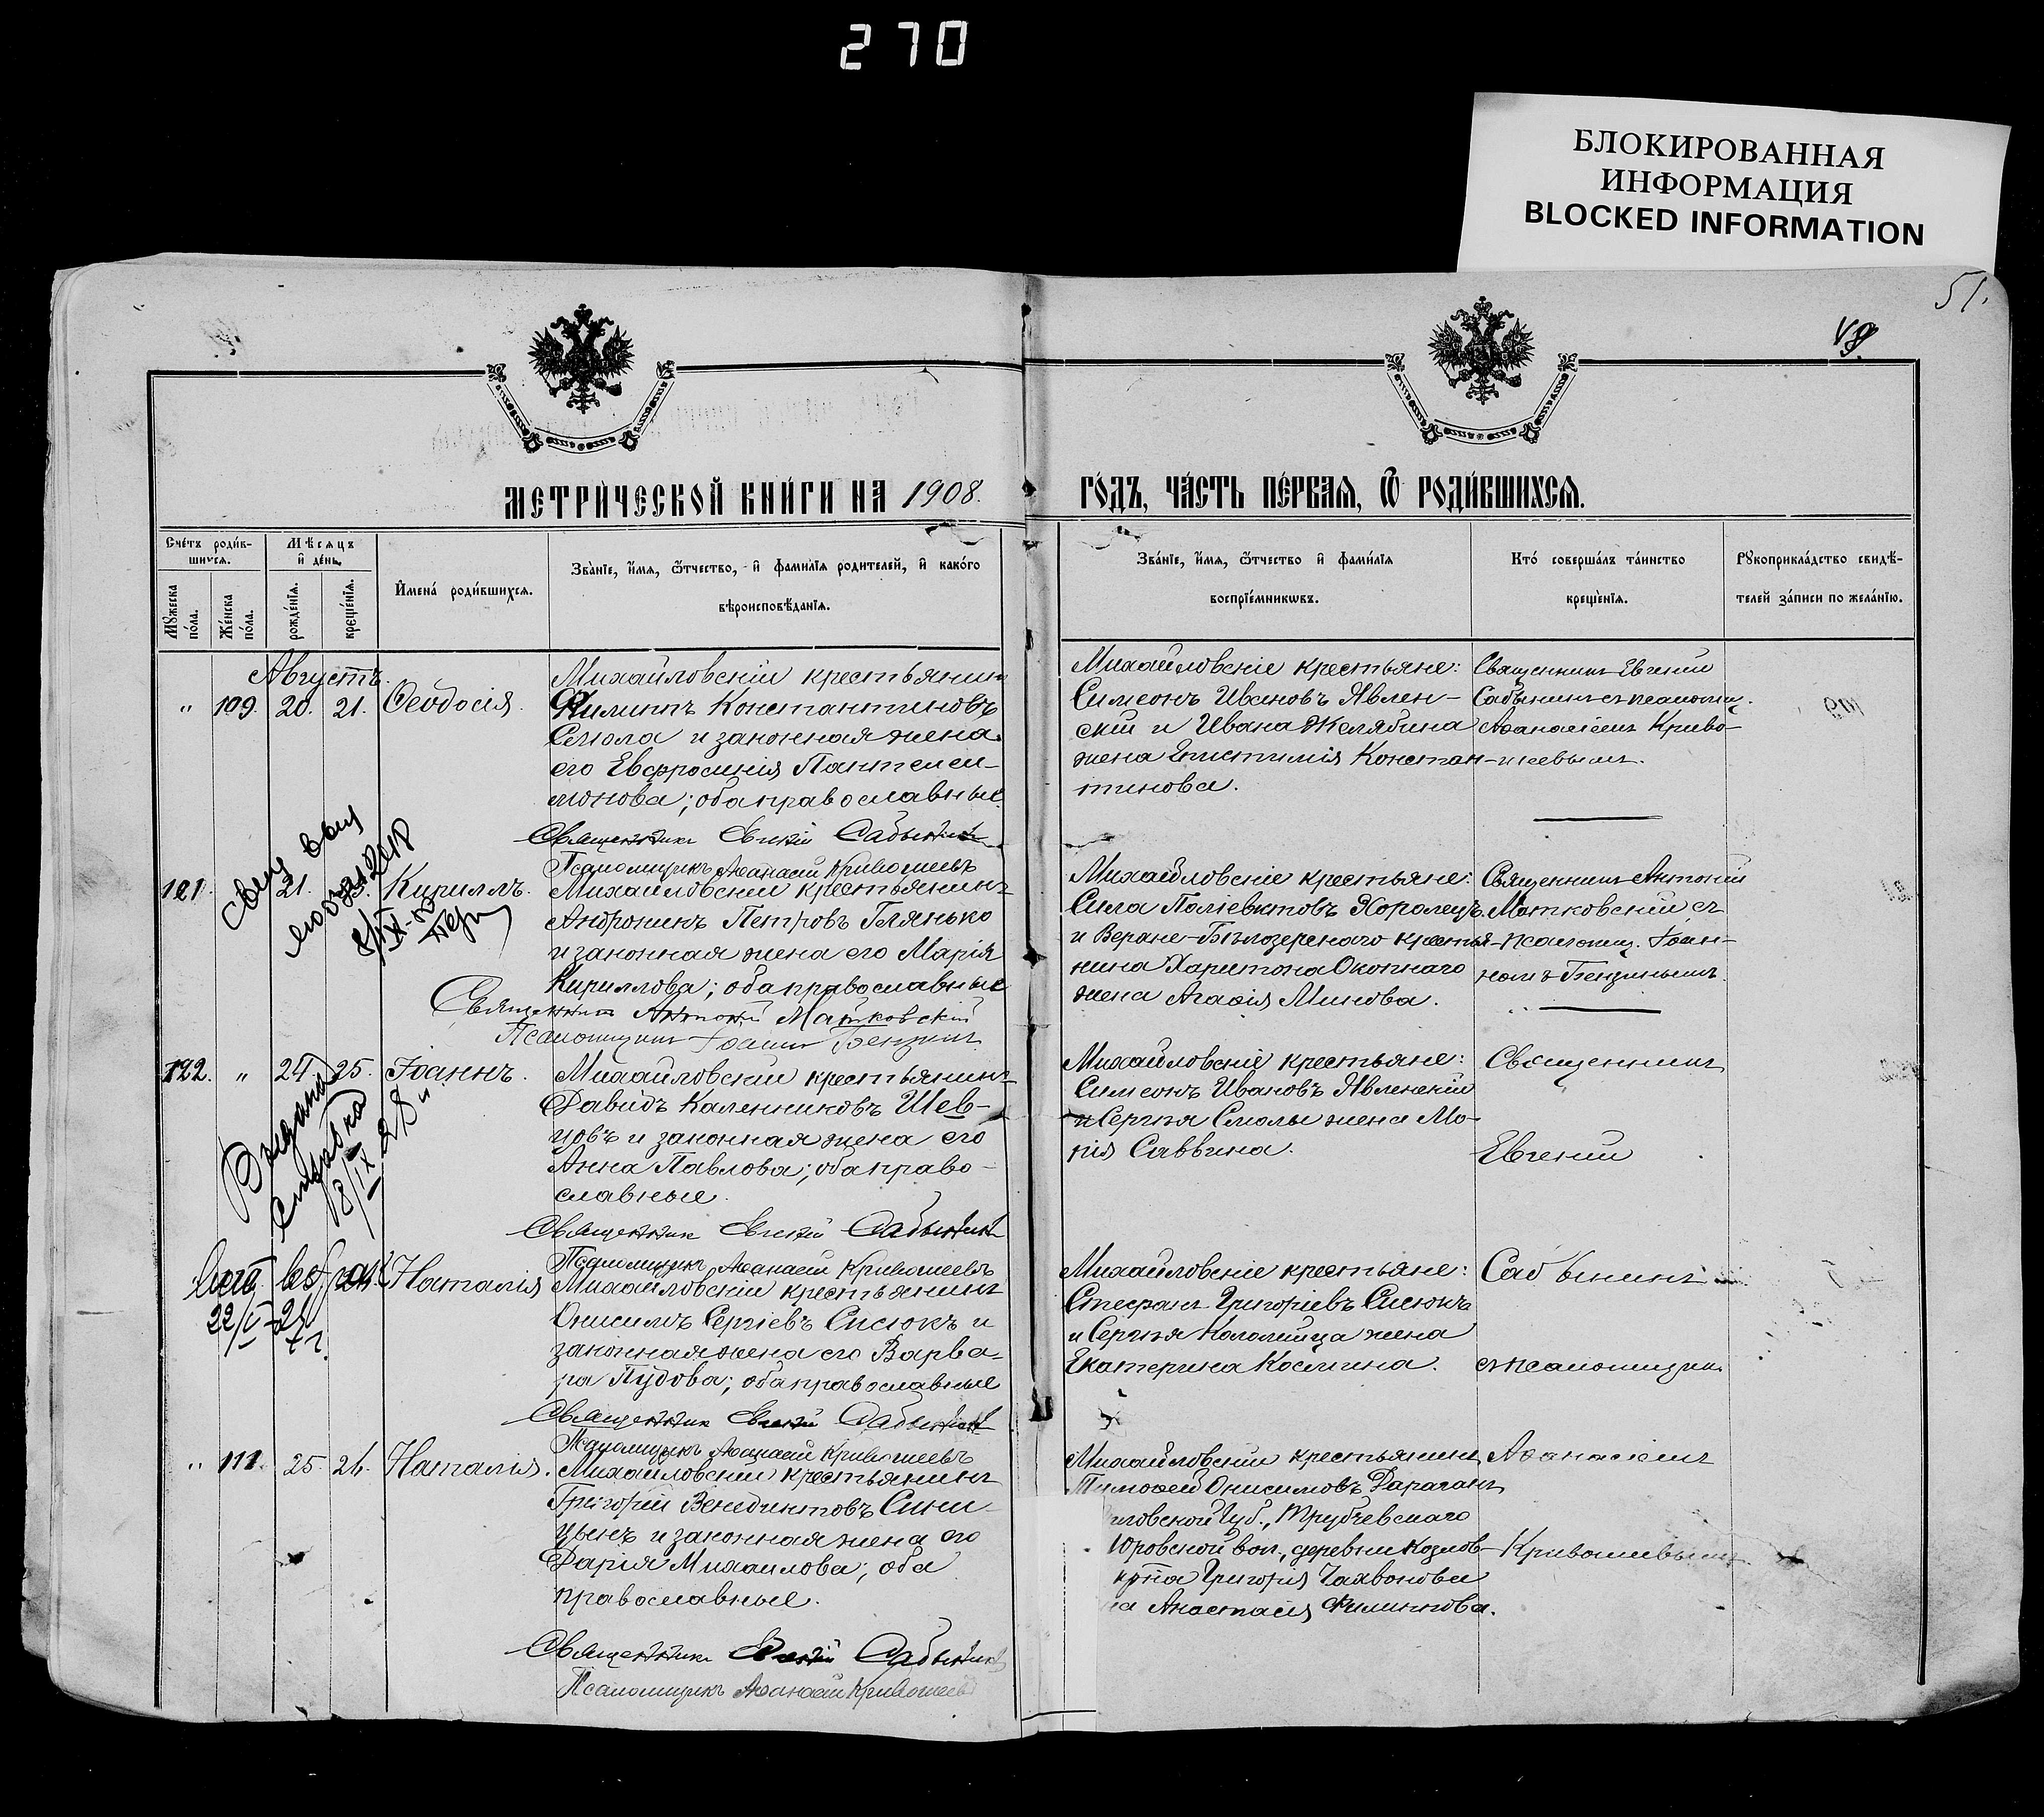 270
БЛОКИРОВАННАЯ
ИНФОРМАЦИЯ
BLOCKED INFORMATION
51.
МЕТРИЧЕСКОЙ КНИГИ НА 1908.
ГОДЪ, ЧАСТЬ ПЕРВАЯ, Ѿ РОДИВШИХСЯ.
Счетъ родив-
шихся.
Мѣсяцъ
и день.
Мужеска
пола.
Женска
пола.
рожденія.
крещенія.
Имена родившихся.
Званіе, имя, ѿтчество, и фамилія родителей, и какого
вѣроисповѣданія.
Званіе, имя, ѿтчество и фамилія
воспріемниковъ.
Кто совершалъ таинство
крещенія.
Рукоприкладство свидѣ-
телей записи по желанію.
Августъ.
" 109. 20. 21. Ѳеодосія.
Михайловскій крестьянинъ
Филиппъ Константиновъ
Семола и законная жена
его Евфросинія Пантелеи-
монова; оба православные
Священникъ Евгеній Сабынинъ
Псаломщикъ Аѳанасій Кривошеевъ
Михайловскіе крестьяне:
Симеонъ Ивановъ Явлен-
скій и Ивана Желябина
жена Епистимія Констан-
тинова.
Священникъ Евгеній
Сабынинъ съ псаломщ.
Аѳанасіемъ Криво-
шеевымъ.
121. 21. Кириллъ.
Михайловскій крестьянинъ
Андроникъ Петровъ Глянько
и законная жена его Марія
Кириллова; оба православные
Священникъ Антоній Матковскій
Псаломщикъ Іоаннъ Бензинъ
Михайловскіе крестьяне:
Сила Поліевктовъ Хоролецъ
и Верхне-Бѣлозерскаго крестья-
нина Харитона Окопнаго
жена Агаѳія Минова.
Священникъ Антоній
Матковскій съ
псаломщ. Іоан-
номъ Бензинымъ.
122. " 24. 25. Іоаннъ.
Михайловскій крестьянинъ
Давидъ Каленниковъ Шев-
цовъ и законная жена его
Анна Павлова; оба право-
славные.
Священникъ Евгеній Сабынинъ
Псаломщикъ Аѳанасій Кривошеевъ
Михайловскіе крестьяне:
Симеонъ Ивановъ Явленскій
и Сергѣя Смолы жена Ма-
рія Саввина.
Священникъ
Евгеній
Выдана
справка
18/IX 28 г.
22/V
Наталія
Михайловскій крестьянинъ
Онисимъ Сергіевъ Сисюкъ и
законная жена его Варва-
ра Пудова; оба православные
Священникъ Евгеній Сабынинъ
Псаломщикъ Аѳанасій Кривошеевъ
Михайловскіе крестьяне:
Стефанъ Григоріевъ Сисюкъ
и Сергѣя Коломійца жена
Екатерина Космина.
Сабынинъ
съ псаломщик.
" 111. 25. 26. Наталія.
Михайловскій крестьянинъ
Григорій Венедиктовъ Сини-
цынъ и законная жена его
Дарія Михаилова; оба
православные.
Священникъ Евгеній Сабынинъ
Псаломщикъ Аѳанасій Кривошеевъ
Михайловскій крестьянинъ
Тимоѳей Онисимовъ Дараганъ
ловской губ., Трубчевскаго
Юровской вол., деревни Козлов-
Григорія
на Анастасія Филиппова.
Аѳанасіемъ
Кривошеевымъ